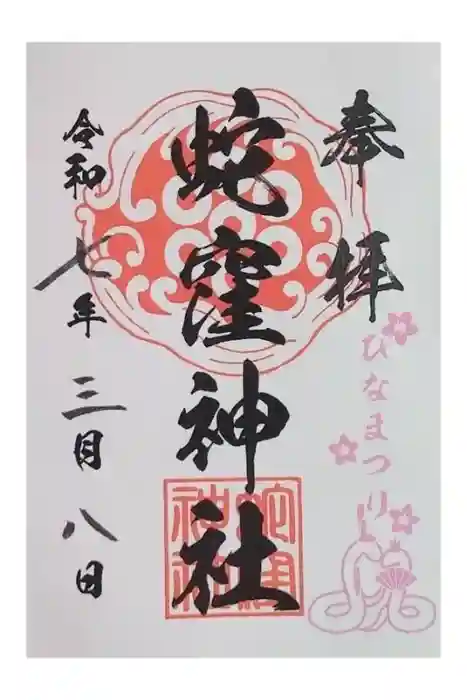 奉拝
ひなまつり
蛇窪神社
蛇窪神社
令和七年三月八日